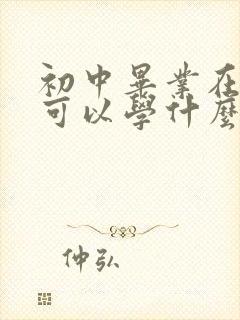 初中畢業在
可以學什麼
仲弘